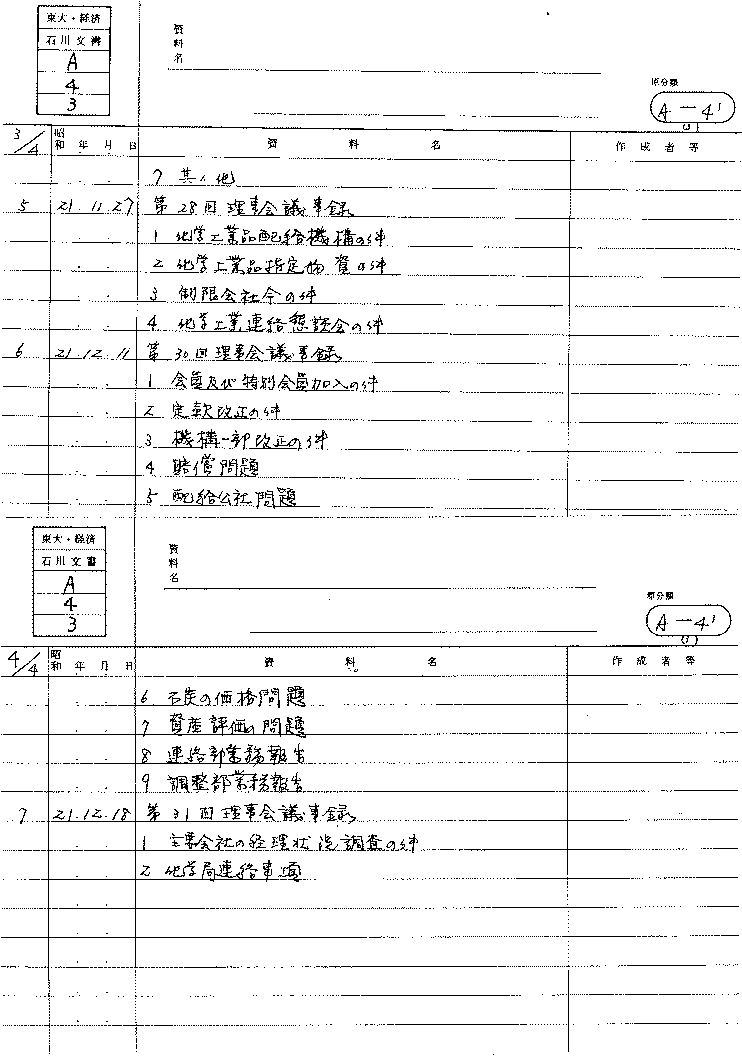 東大・経済
石川文書
A
4
3
資料名
原分類
A-4'
(1)
3/4 昭和 年 月 日 資料名 作成者等
7 其ノ他
5 21.11.27 第28回理事会議事録
1 化学工業品配給機構の件
2 化学工業品指定物資の件
3 制限会社令の件
4 化学工業連絡懇談会の件
6 21.12.11 第30回理事会議事録
1 会員及び特別会員加入の件
2 定款改正の件
3 機構一部改正の件
4 賠償問題
5 配給公社問題
東大・経済
石川文書
A
4
3
資料名
原分類
A-4'
(1)
4/4 昭和 年 月 日 資料名 作成者等
6 石炭の価格問題
7 資産評価の問題
8 連絡部業務報告
9 調整部業務報告
7 21.12.18 第31回理事会議事録
1 主要会社の経理状況調査の件
2 化学局連絡事項